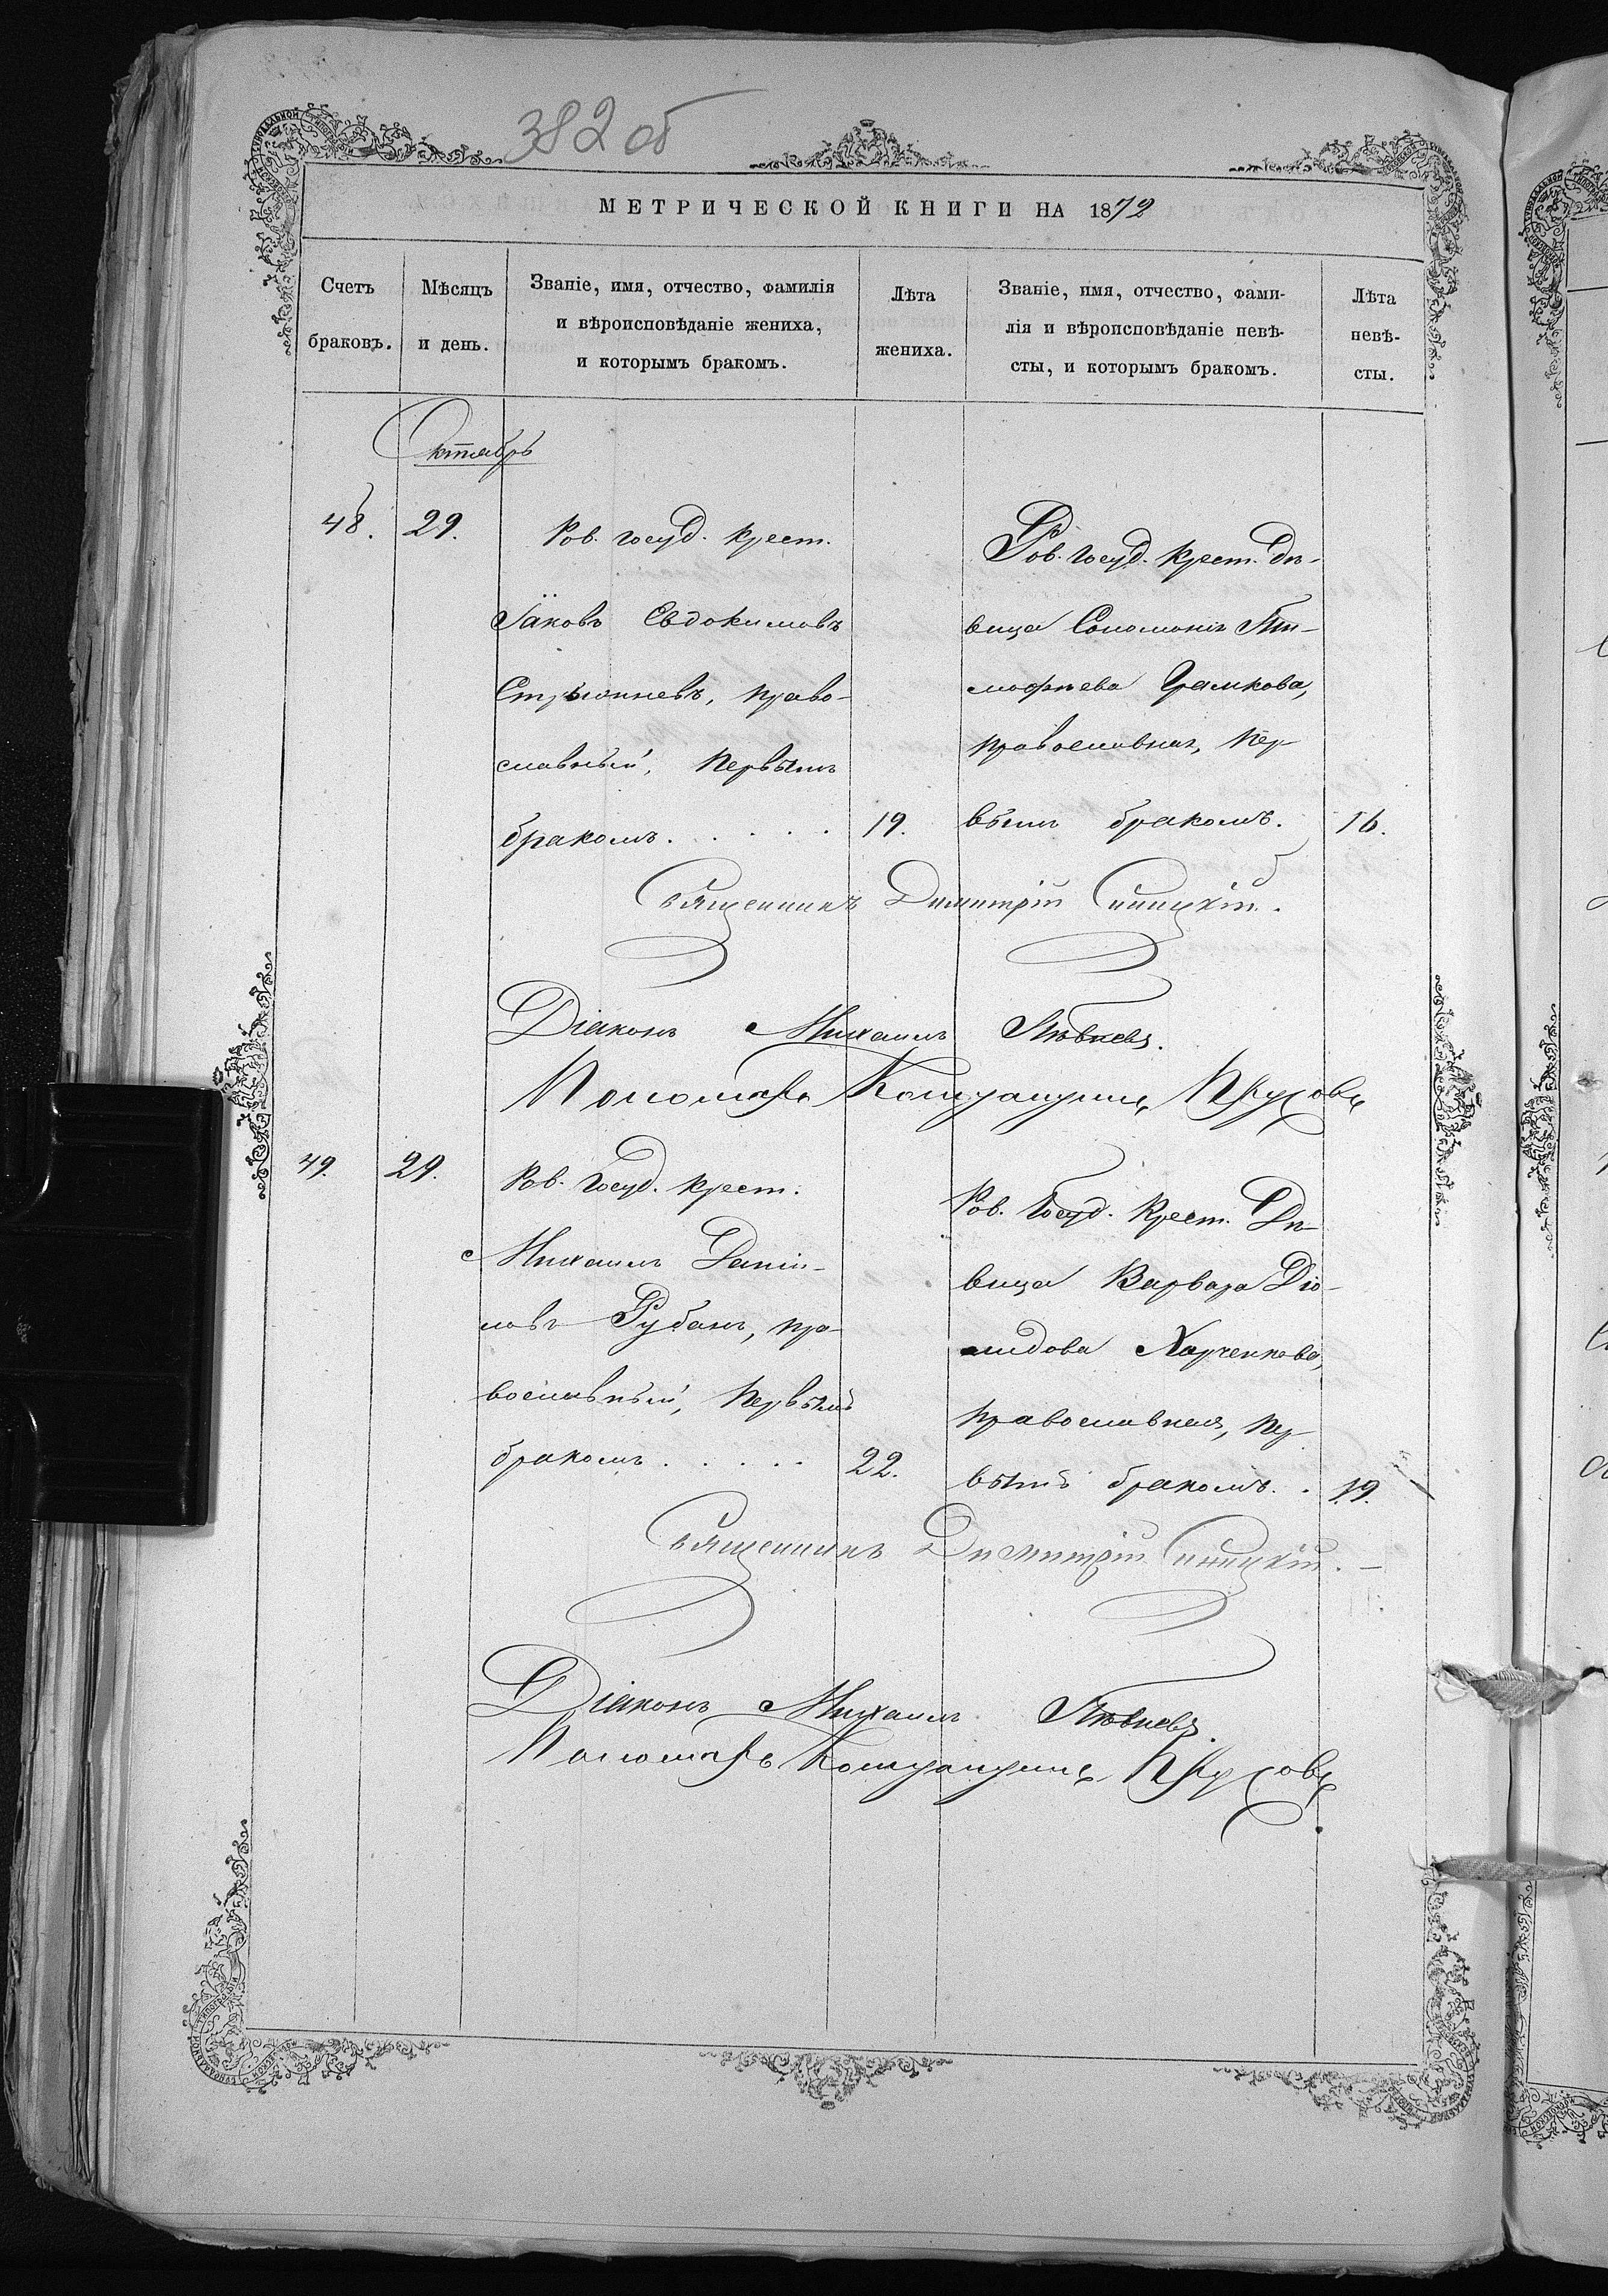 382 об
МЕТРИЧЕСКОЙ КНИГИ НА 1872
Счетъ
браковъ.
Мѣсяцъ
и день.
Званіе, имя, отчество, фамилія
и вѣроисповѣданіе жениха,
и которымъ бракомъ.
Лѣта
жениха.
Званіе, имя, отчество, фами-
лія и вѣроисповѣданіе невѣ-
сты, и которымъ бракомъ.
Лѣта
невѣ-
сты.
Октябрь
48.
29.
Ров. госуд. крест.
Іаковъ Евдокимовъ
право-
славный, первымъ
бракомъ.....
19.
Ров. госуд. крест. дѣ-
вица Соломонія Ти-
мофѣева
православная, пер-
вымъ бракомъ.
16.
Священникъ Димитрій Синицкій.
Діаконъ Михаилъ Пѣвневъ.
Пономарь
49.
29.
Ров. Госуд. крест.
Михаилъ Даніи-
ловъ Рубанъ, пра-
вославный, первымъ
бракомъ.....
22.
Ров. Госуд. Крест. Дѣ-
вица Варвара Діо-
мидова Харченкова,
православная, пер-
вымъ бракомъ..
19.
Священникъ Димитрій Синицкій.
Діаконъ Михаилъ Пѣвневъ.
Пономарь